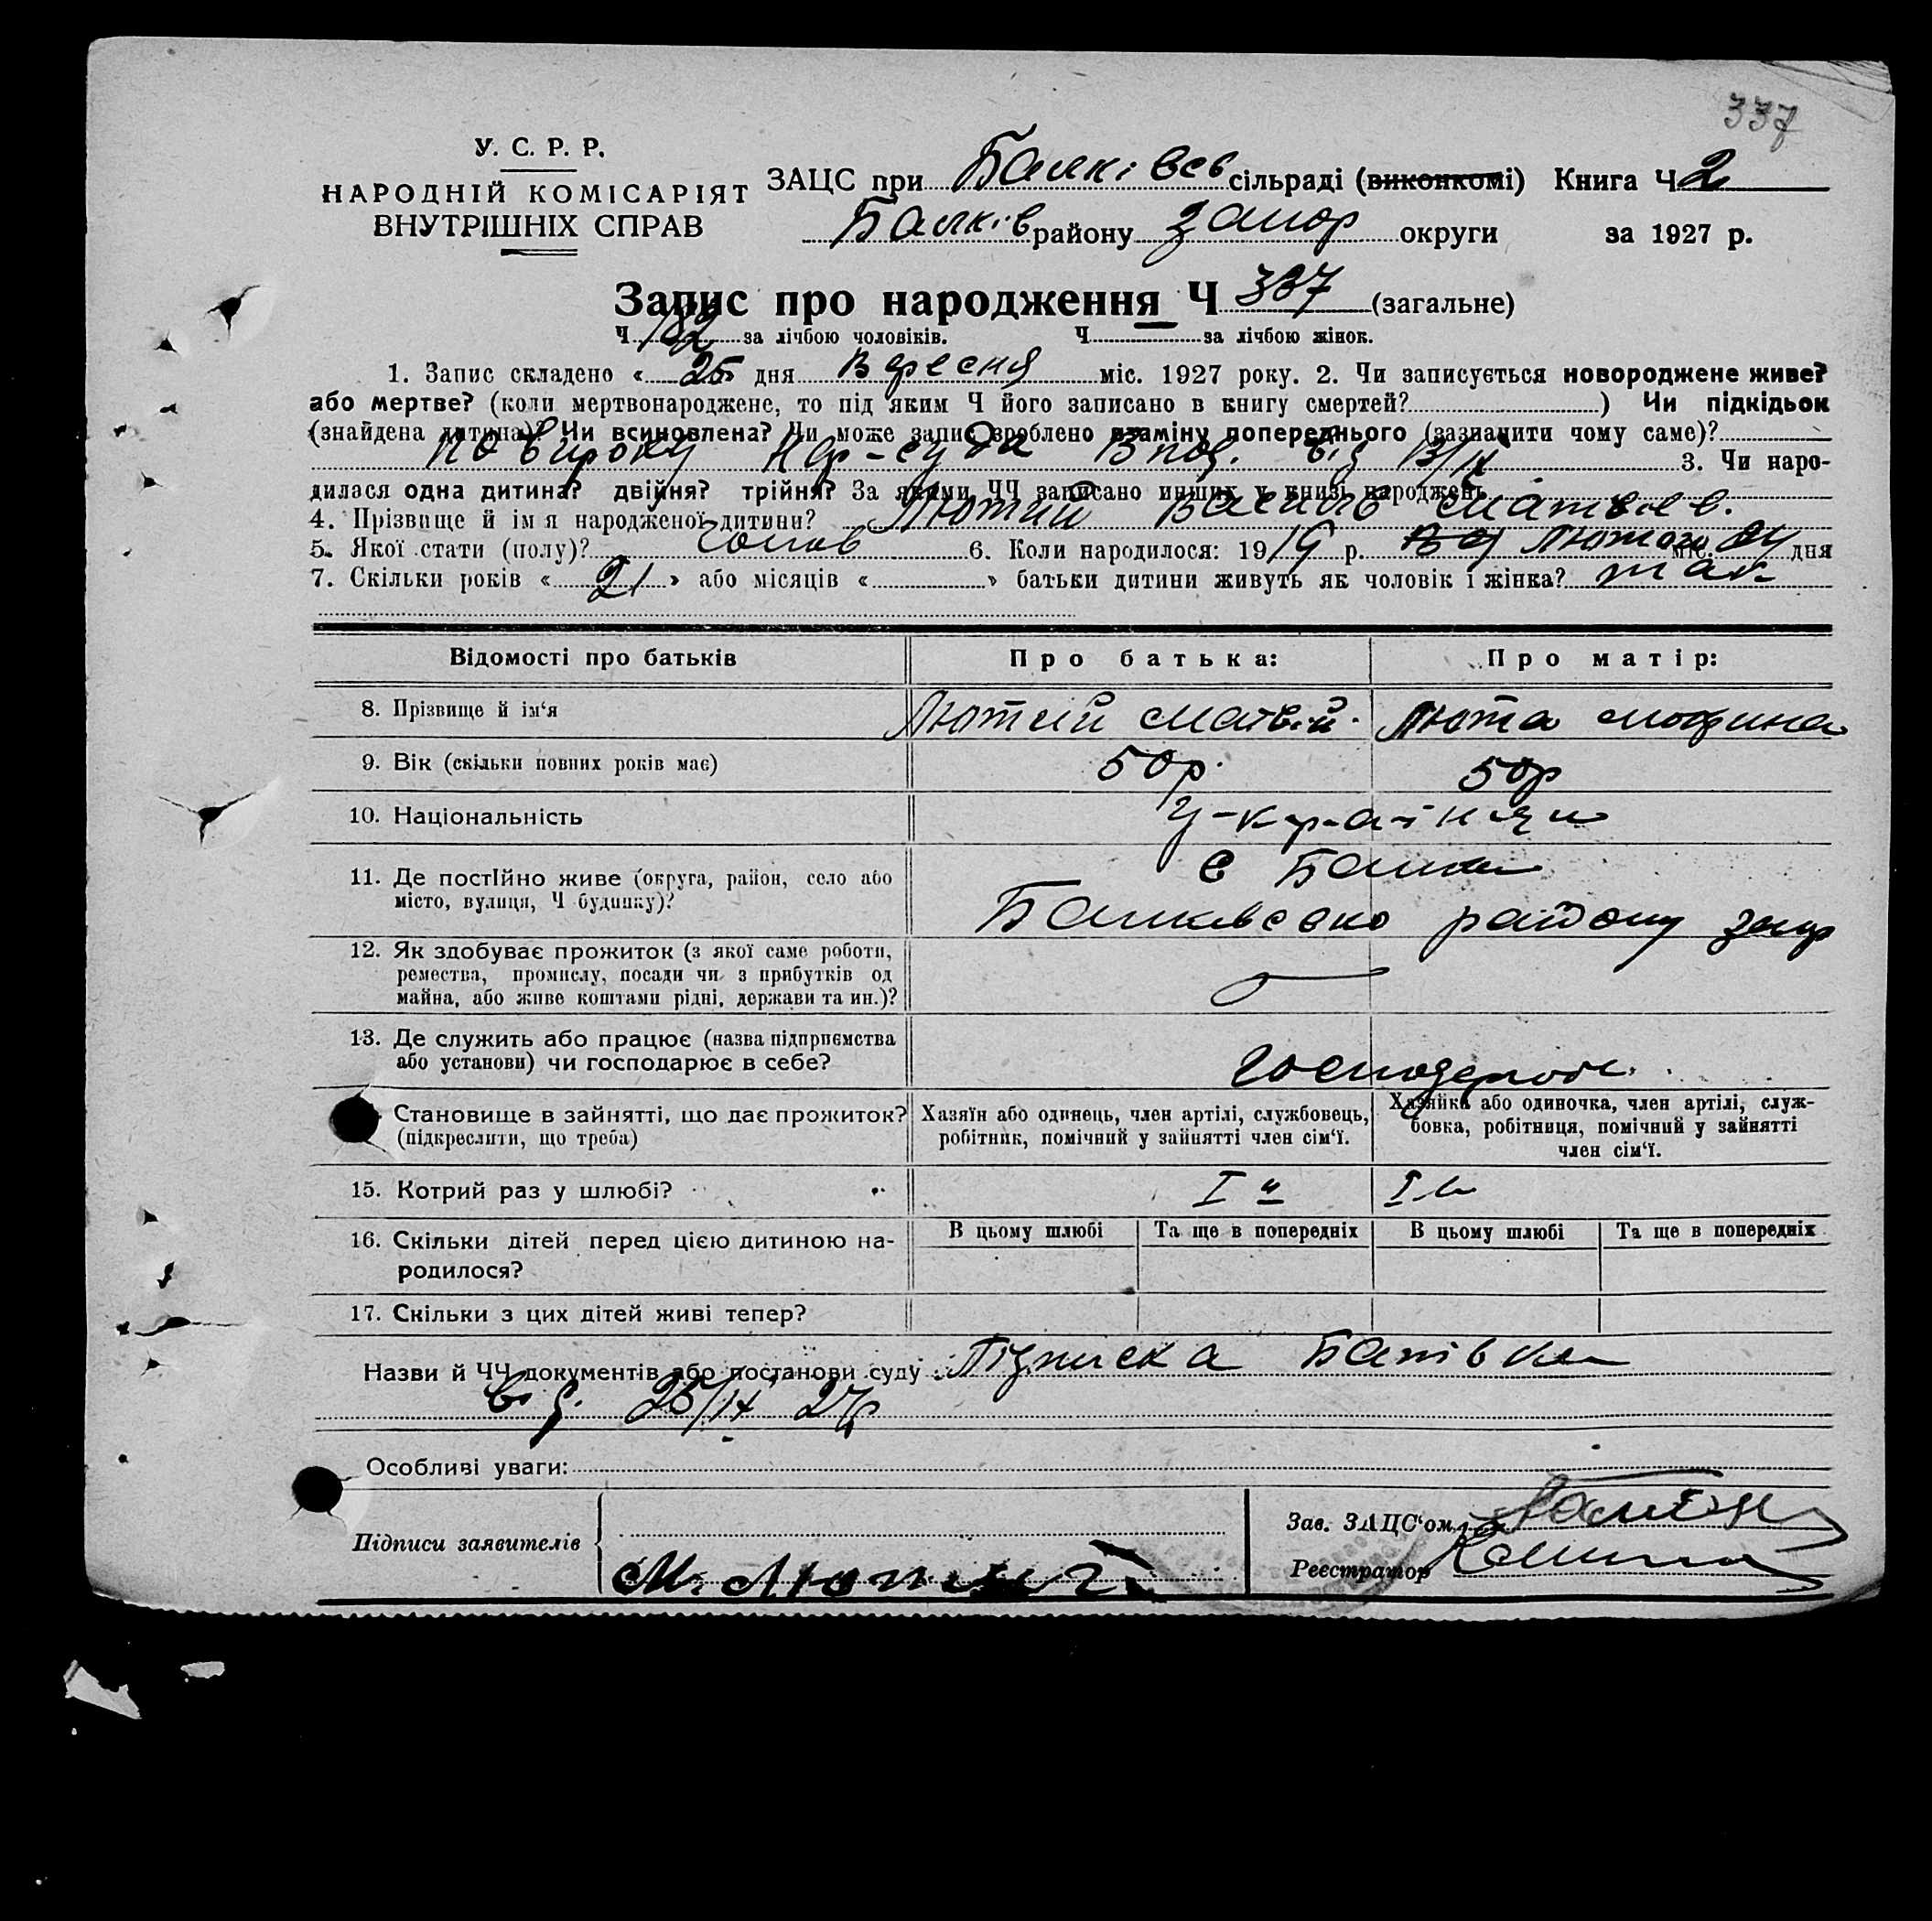 337
У. С. Р. Р.
НАРОДНІЙ КОМІСАРІЯТ
ВНУТРІШНІХ СПРАВ
ЗАЦС при Балківсь сільраді (виконкомі) Книга Ч 2
Балків району Запор округи за 1927 р.
Запис про народження Ч 337 (загальне)
Ч 182 за лічбою чоловіків. Ч за лічбою жінок.
1. Запис складено « 25 » дня Вересня міс. 1927 року. 2. Чи записується новороджене живе?
або мертве? (коли мертвонароджене, то під яким Ч його записано в книгу смертей? ) Чи підкідьок
(знайдена дитина)? Чи всиновлена? Чи може запис зроблено взаміну попереднього (зазначити чому саме)?
по вироку Нар-суда від 13/IX 3. Чи наро-
дилася одна дитина? двійня? трійня? За якими ЧЧ записано инших у книзі народжень
4. Прізвище й імя народженої дитини? Лютий Василь Матвіев.
5. Якої стати (полу)? Чолов 6. Коли народилося: 19 19 р. Лютого міс. 24 дня
7. Скільки років « 21 » або місяців « » батьки дитини живуть як чоловік і жінка? так
Відомості про батьків Про батька: Про матір:
8. Прізвище й ім'я Лютий Матвій. Люта Мотрина
9. Вік (скільки повних років має) 50р. 50р
10. Національність У-кра-їнци
11. Де постІйно живе (округа, район, село або с Балки
місто, вулиця, Ч будинку)? Балківсько району Запор
12. Як здобуває прожиток (з якої саме роботи,
ремества, промислу, посади чи з прибутків од
майна, або живе коштами рідні, держави та ин.)?
13. Де служить або працює (назва підприємства
або установи) чи господарює в себе?
Становище в зайнятті, що дає прожиток? Хазяїн або одинець, член артілі, службовець, Хазяйка або одиночка, член артілі, служ-
(підкреслити, що треба) робітник, помічний у зайнятті член сім'ї. бовка, робітниця, помічний у зайнятті
член сім'ї.
15. Котрий раз у шлюбі? I й I й
16. Скільки дітей перед цією дитиною на- В цьому шлюбі Та ще в попередніх В цьому шлюбі Та ще в попередніх
родилося?
17. Скільки з цих дітей живі тепер?
Назви й ЧЧ документів або постанови суду Підписка Батівка
від. 25/IX 27р
Особливі уваги:
Підписи заявителів Зав. ЗАЦС'ом
М. Лютий Реєстратор